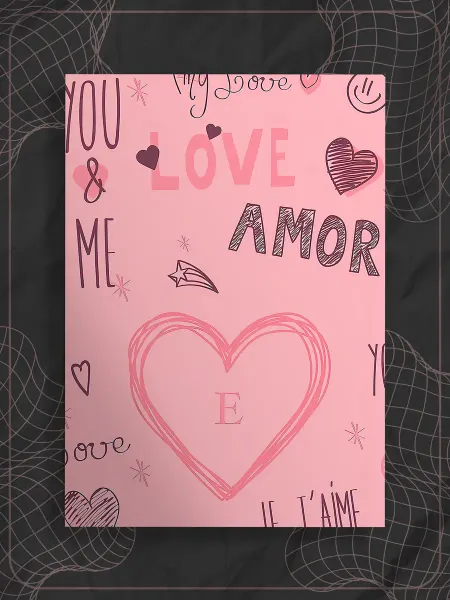 My Love
YOU
&
ME
LOVE
AMOR
E
Love
JE T'AIME